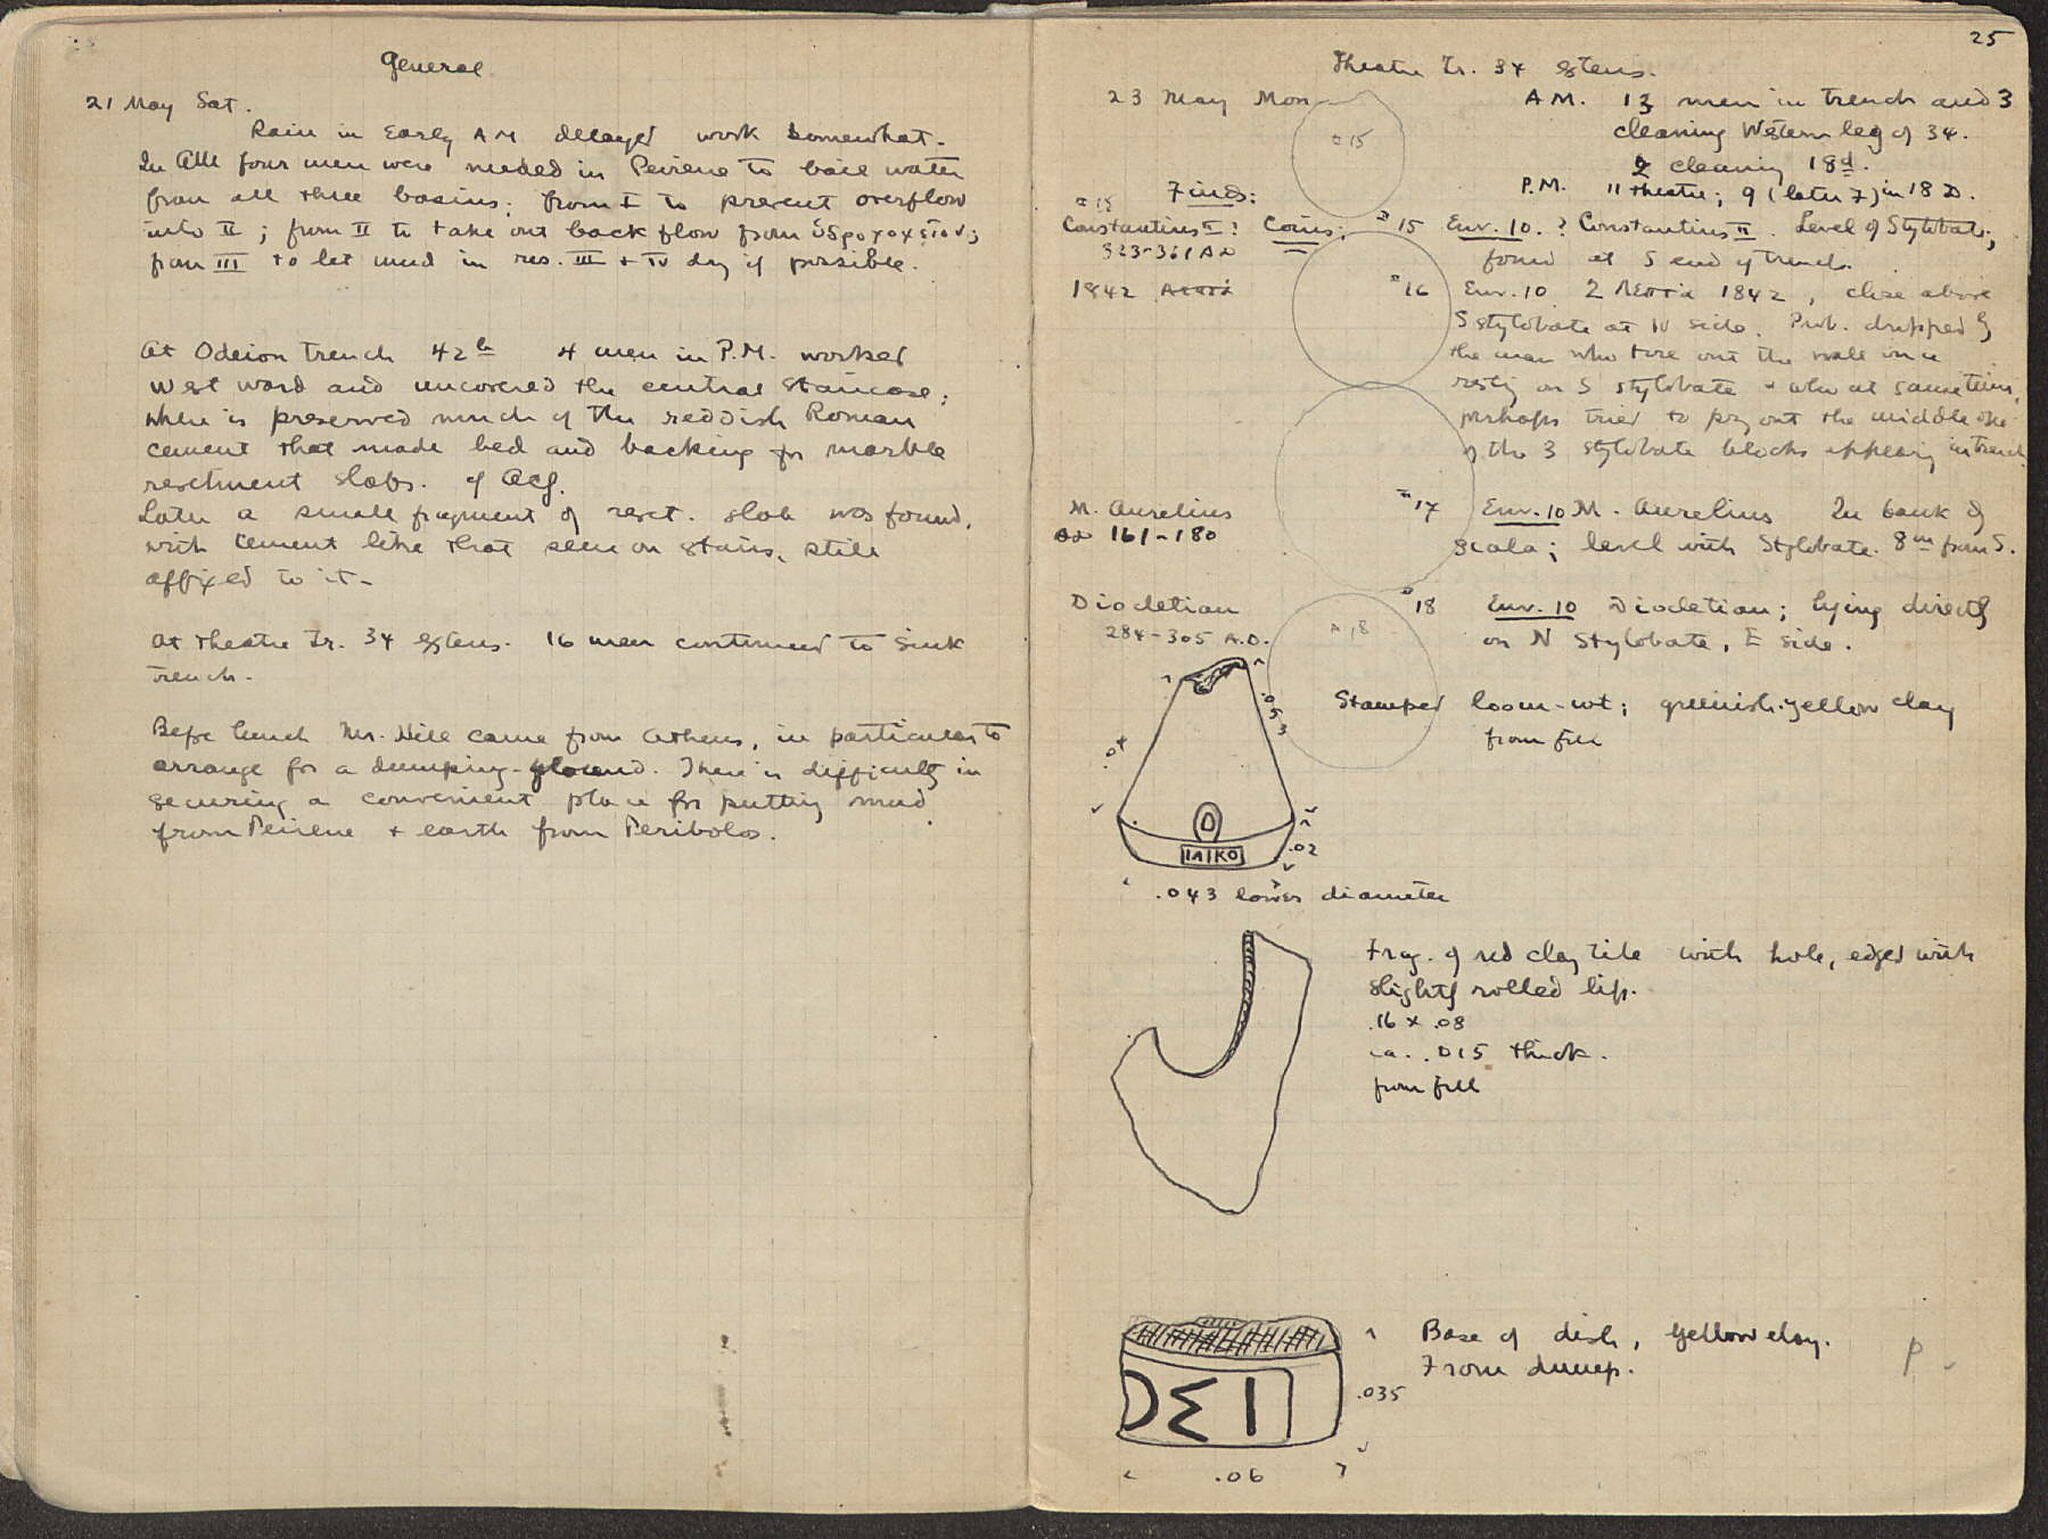 General
21 May Sat.
Rain in Early AM delayed work somewhat.
In all four men were needed in Peirene to bail water
from all three basins; from I to prevent overflow
into II; from II to take out back flow from
from III to let mud in res. III + IV dry if possible.
At Odeion trench 42 4 men in P.M. worked
westward and uncovered the central staircase;
where is preserved much of the reddish Roman
cement that made bed and backing for marble
revetment slabs. cf
Later a small fragment of revet. slab was found,
with cement like that seen on stairs, still
affixed to it -
At theatre Tr. 34 extens. 16 men continued to sink
trench -
Before lunch Mr. Hill came from Athens, in particular to
arrange for a dumping-ground. There is difficulty in
securing a convenient place for putting mud
from Peirene + earth from Peribolos.
25
Theatre Tr. 34 extens.
23 May Mon
A.M. 13 men in trench and 3
cleaning Western leg of 34.
2 cleaning 18d.
P.M. 11 theatre; 9 (later 7) in 18 D.
#15
Finds:
#15
Constantius II? Coins: #15 Env. 10. ? Constantius II. Level of Stylobate;
323-361 AD found at S end of trench.
1842 #16 Env. 10 2 Λεπτά 1842, close above
S stylobate at W side. Prob. dropped by
the man who tore out the wall once
resting on S stylobate + who at same time,
perhaps tried to pry out the middle one
of the 3 stylobate blocks appearing in trench.
M. Aurelius #17 Env. 10 M. Aurelius In bank of
AD 161-180 Scala; level with Stylobate. 8m from S.
Diocletian #18 Env. 10 Diocletian; lying directly
284-305 A.D. on N Stylobate, E side.
#18
Stamped loom-wt; greenish-yellow clay
from fill
.04
.053
.02
.043 lower diameter
Frag. of red clay tile with hole, edged with
slightly rolled lip.
.16 x .08
ca. .015 thick.
from fill
Base of dish, yellow clay. P
From dump.
.035
.06